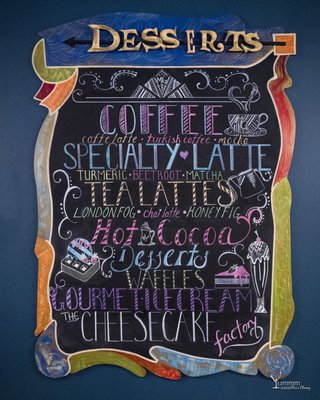 DESSERTS
COFFEE
caffe latte · turkish coffee · mocha
SPECIALTY LATTE
TURMERIC · BEETROOT · MATCHA
TEA LATTES
LONDON FOG · chai latte · HONEY FIG
Hot Cocoa
Desserts
WAFFLES
GOURMET ICE CREAM
THE CHEESECAKE factory
Yummm